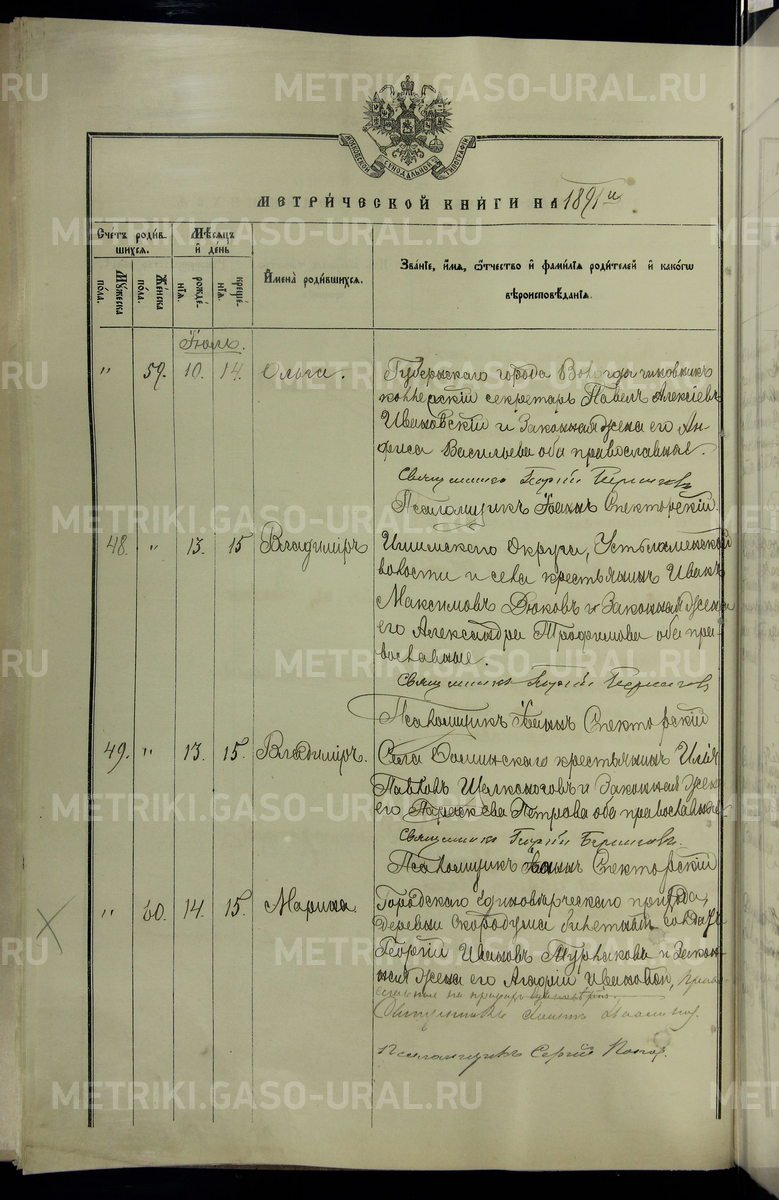 METRIKI.GASO-URAL.RU
МОСКОВСКОЙ СѴНОДАЛЬНОЙ ТИПОГРАФІИ
МЕТРИ́ЧЕСКОЙ КНИ́ГИ НА 1891 и
Сче́тъ роди́вшихся.
Мѣ́сяцъ и҆ де́нь
И҆мена̀ роди́вшихся.
Зва́нїе, и҆́мѧ, ѻ҆́тчество и҆ фами́лїѧ роди́телей и҆ како́гѡ
вѣроисповѣ́данїѧ.
Мꙋ́жеска по́ла.
Же́нска по́ла.
рожде́нїѧ.
креще́нїѧ.
Іюль.
" 59. 10. 14. Ольга.
Губернскаго города Вологды чиновникъ
коллежскій секретарь Павелъ Алексіевъ
Ивановскій и Законная жена его Ан-
фиса Васильева оба православные.
Священникъ Георгій
Псаломщикъ Іоаннъ Спекторскій.
48. " 13. 15 Владиміръ
Ишимскаго Округа, Устьламенской
волости и села крестьянинъ Иванъ
Максимовъ Дюковъ и Законная жена
его Александра Трофимова оба пра-
вославные.
Священникъ Георгій
Псаломщикъ Іоаннъ Спекторскій
49. " 13. 15. Владиміръ.
Села крестьянинъ Илія
Павловъ Шелконоговъ и Законная жена
его Параскева Петрова оба православные
Священникъ Георгій
Псаломщикъ Іоаннъ Спекторскій
" 60. 14. 15. Марина
Городскаго единовѣрческаго прихода,
деревни Скородума билетный солдатъ
Георгій Ивановъ Мурныковъ и Закон-
ная жена его Агафія Иванова,
Псаломщикъ Сергій Попов.